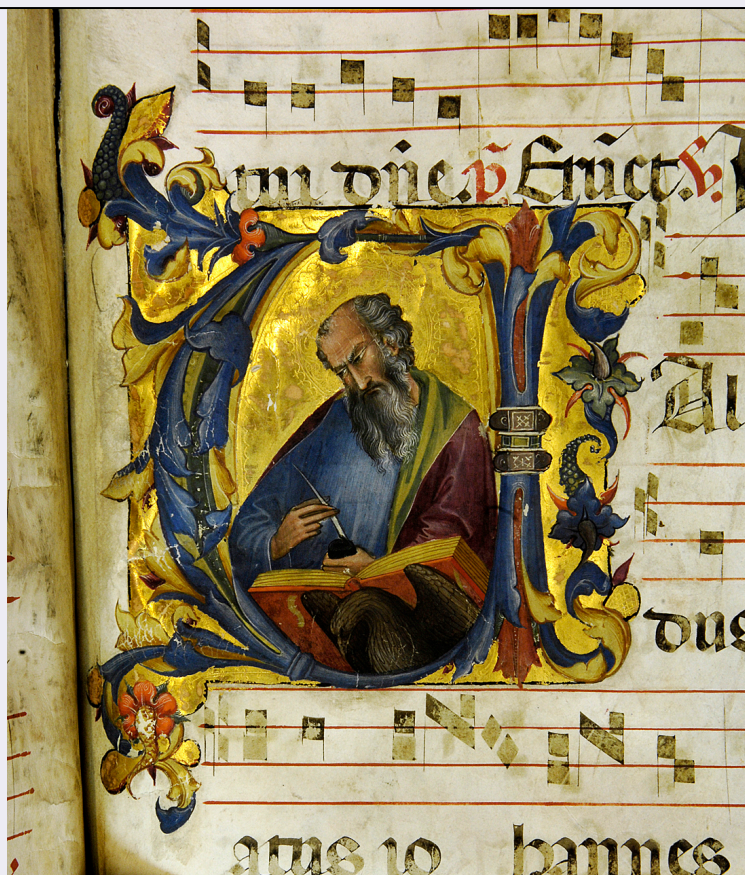 tum dñe. p̄. Eruct. V.
Au
dus
atus io hannes